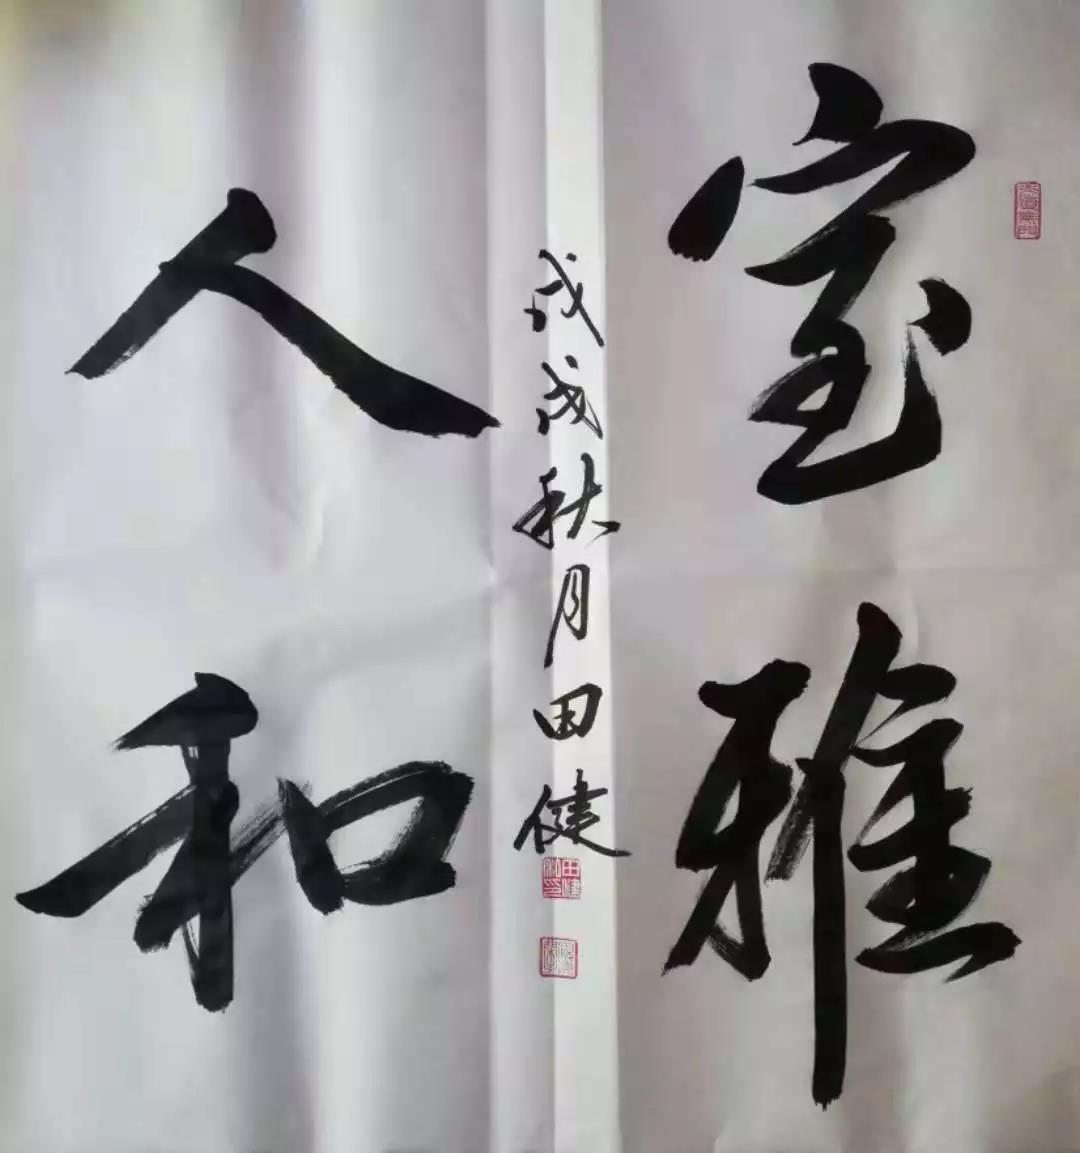 室雅
人和
戊戌秋月田健